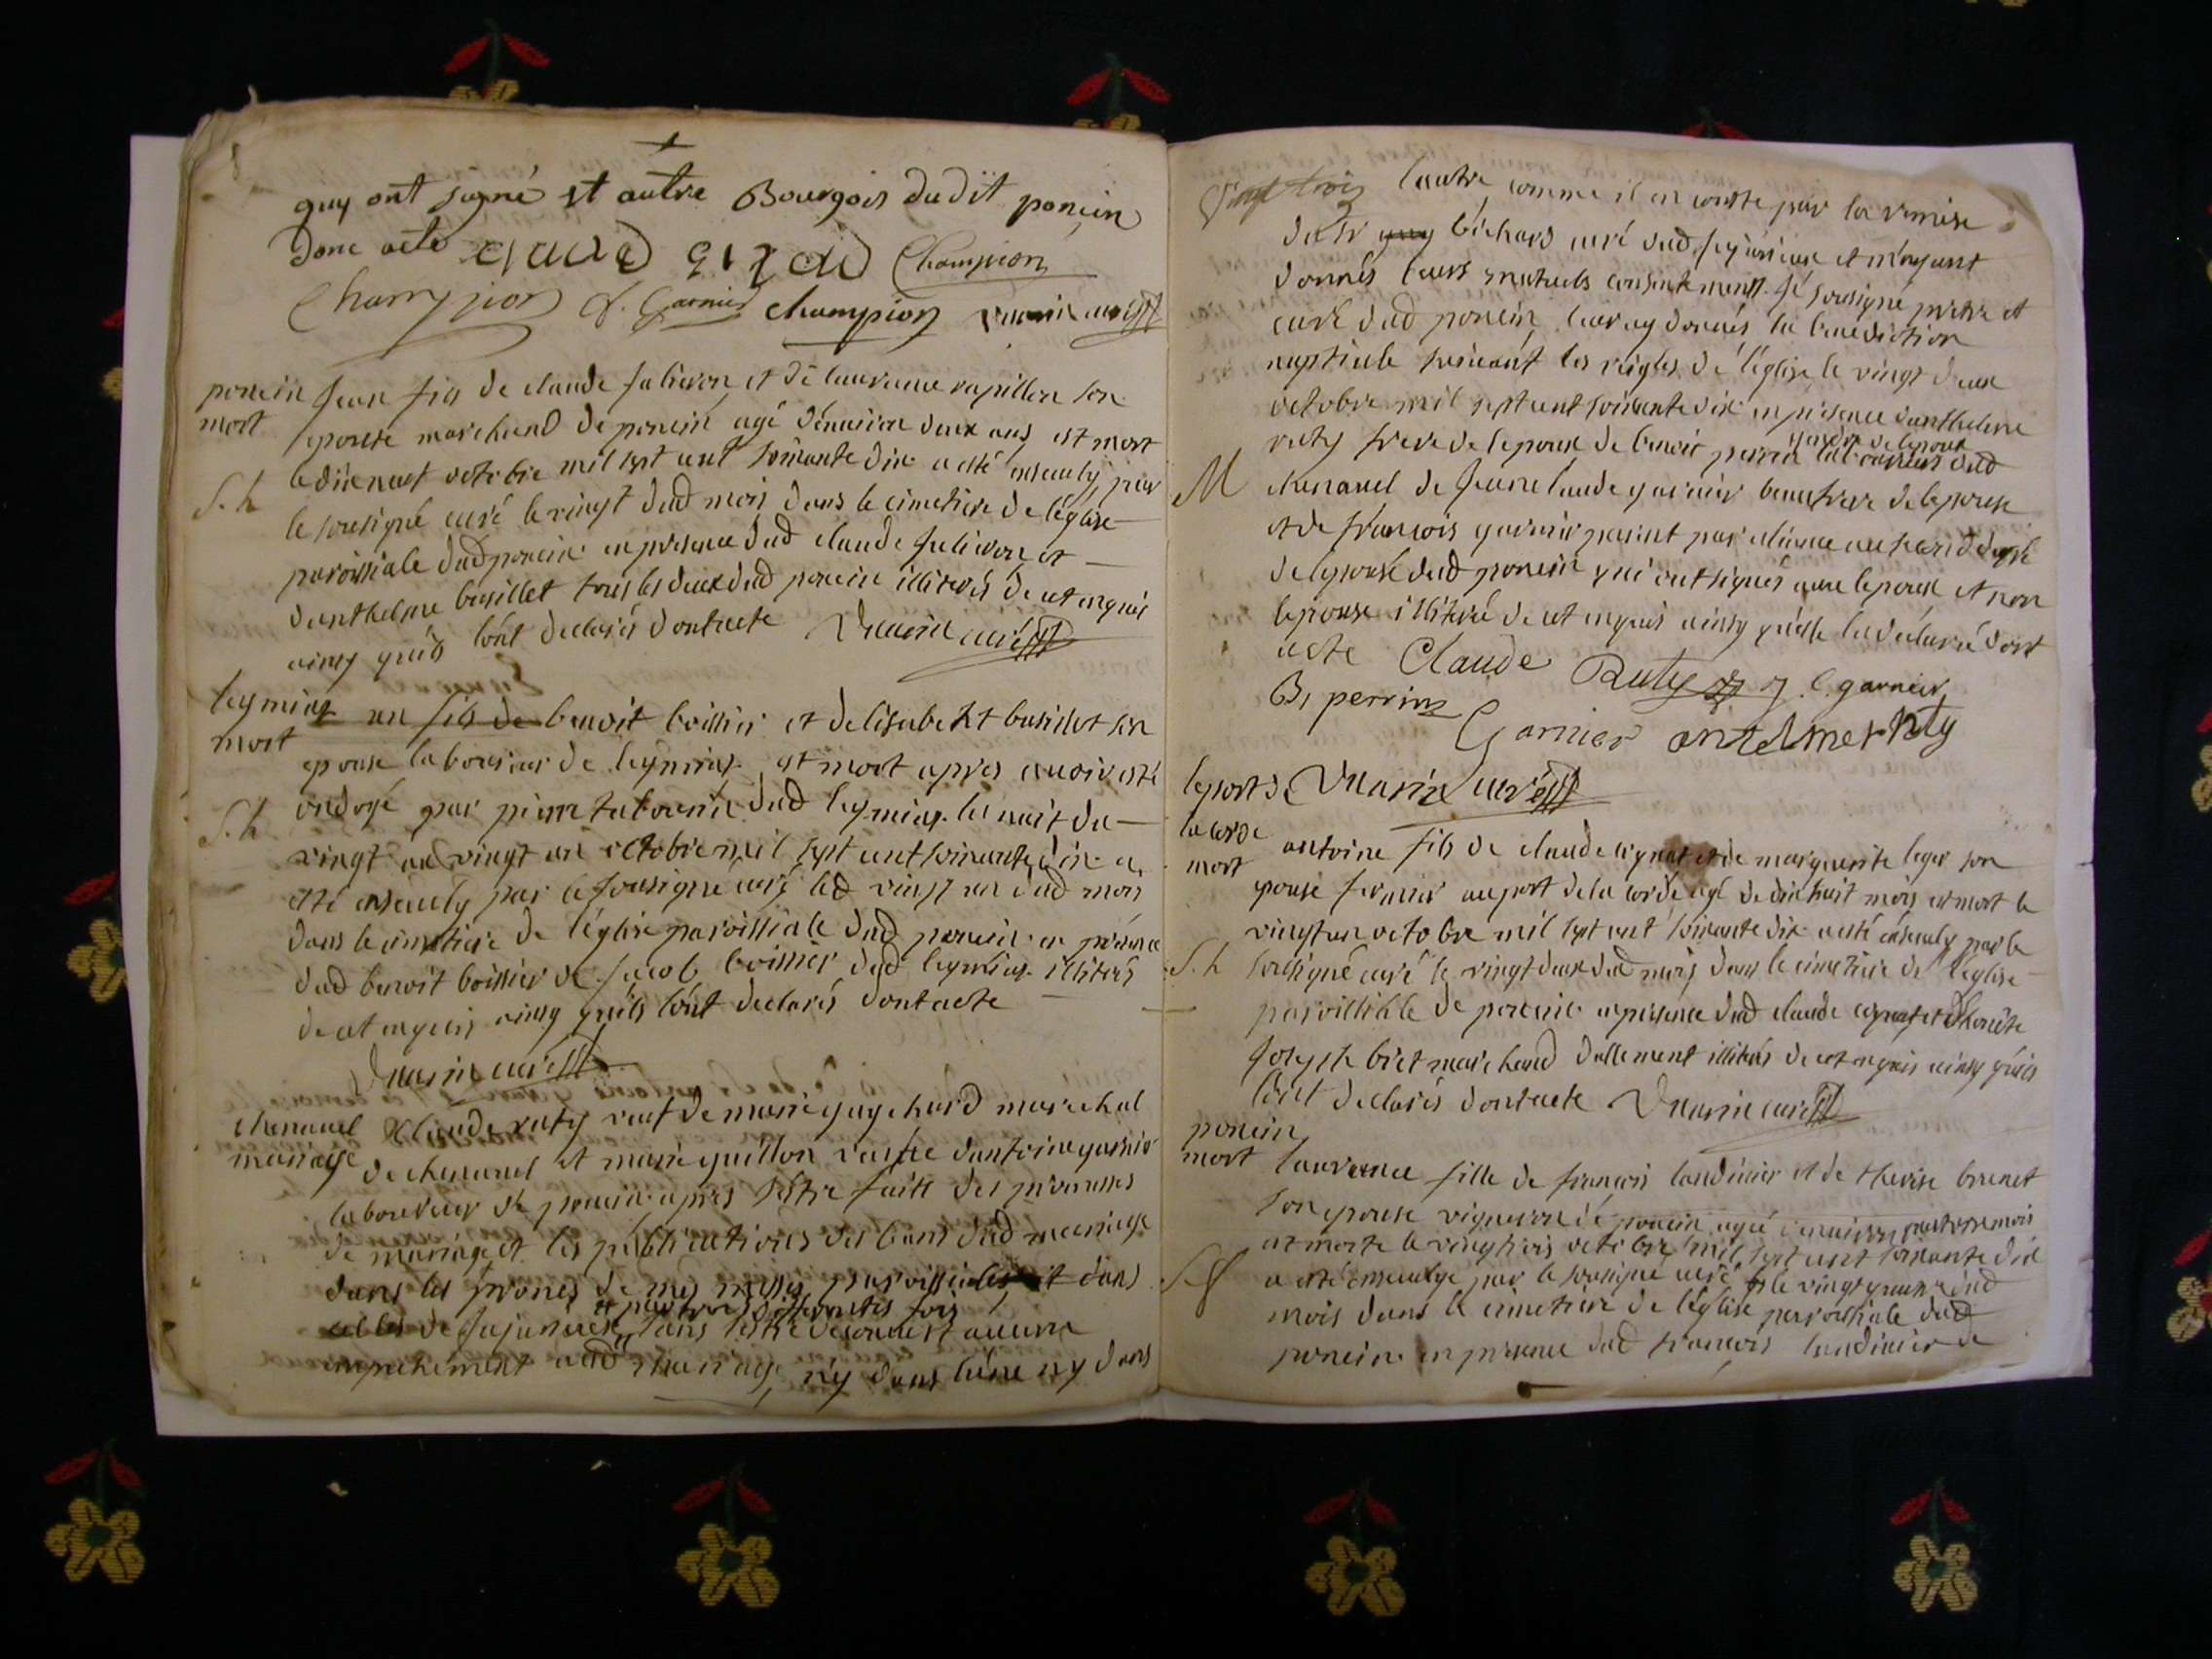 guy ont signé et autre Bourgois dudit poncin
donc acte claude girod Champion
Champion J. Garnier champion curé
poncin Jean fils de claude et de laurance rapillon son
mort epouse marchand de poncin agé dénuiron deux ans est mort
le dixneuf octobre mil sept cent soixante dix a esté enseuely par
S. h le sousigné curé le vingt dud mois dans le cimetiere de léglise
paroissiale dud poncin en presence dud claude et
danthelme basillet tous les deux dud poncin illiterés de ce enquis
ainsy quils lont declarés dont acte curé
leymiat un fils de benoit boissier et delisabeht basillet son
mort epouse laboureur de leymiat est mort apres auoir esté
ondoyé par pierre dud leymiat la nuit du
S. h vingt au vingt un octobre mil sept cent soixante dix a
esté enseuely par le sousigné curé led vingt un dud mois
dans le cimetiere de léglise paroissiale dud poncin en présence
dud benoit boissier de jacob boissier dud leymiat illiterés
de ce enquis ainsy quils lont declarés dont acte
curé
chenauel Claude ruty veuf de marie marechal
mariage de chenauel et marie guillon veufue dantoine garnier
laboureur de poncin apres sestre faitt des promesses
de mariage et les publications des bans dud mariage
dans les prones de mes messes paroissiales et dans
et par trois differentes fois
celles de sans sestre decouuert aucune
empechement aud mariage ny dans lune ny dans
Vingt trois lautre comme il en conste par la remise
du sr bichard curé dud et mayant
donnés leurs mutuels consentements je sousigné pretre et
curé dud poncin leur ay donnés la benediction
nuptiale suiuant les reigles de léglise le vingt deux
octobre mil sept cent soixante dix en presence danthelme
gendre de lepoux
ruty frere de lepoux de benoit perrin dud
M chenauel de jean claude garnier beaufrere de lepouse
et de françois garnier parent par aliance au
de lepouse dud poncin qui ont signés auec lepoux et non
lepouse illiterée de ce enquis ainsy quelle la declaré dont
acte Claude Ruty J. C. garnier
B. perrin Garnier antelme ruty
le port de curé
la corde
mort antoine fils de claude et de marguerite leger son
epouse fermier au port de la corde agé de dixhuit mois est mort le
vingt un octobre mil sept cent soixante dix a esté enseuely par le
S. h sousigné curé le vingt deux dud mois dans le cimetiere de léglise
paroissialle de poncin en presence dud claude et dhonéte
joseph briet marchand dallement illiterés de ce enquis ainsy quils
lont declarés dont acte curé
poncin
mort laurance fille de françois landinier et de therese brunet
son epouse vigneron de poncin agée denuiron quatorse mois
est morte le vingtrois octobre mil sept cent soixante dix
S f a esté enseuelye par le sousigné curé le vingt quatre dud
mois dans le cimetiere de léglise paroissiale dud
poncin en presence dud françois landinier de